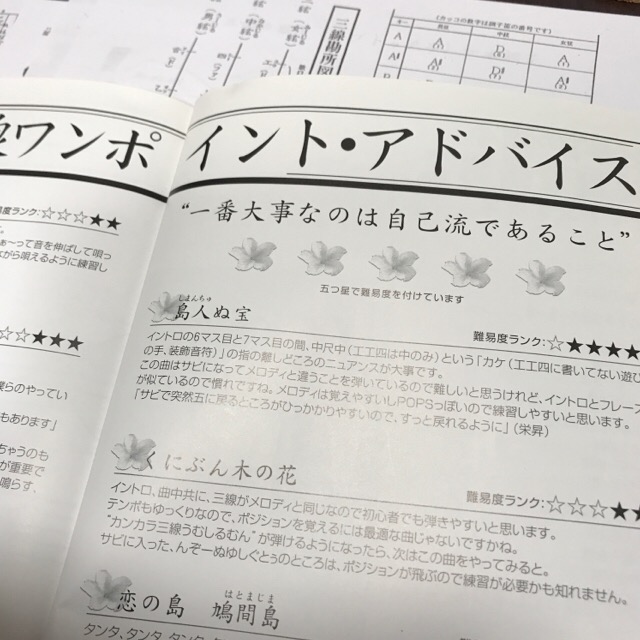 三線勘所図
(カッコの数字は調子笛の番号です)
ワンポイント・アドバイス
難易度ランク:☆☆☆★★
って音を伸ばして唄っ
がら唄えるように練習し
☆☆★★★
僕らのやってい
もあります」
ちゃうのも
が重要で
鳴らす、
"一番大事なのは自己流であること"
五つ星で難易度を付けています
しまんちゅ
島人ぬ宝
難易度ランク:☆★★★★
イントロの6マス目と7マス目の間、中尺中(工工四は中のみ)という「カケ(工工四に書いてない遊び
の手、装飾音符)」の指の離しどころのニュアンスが大事です。
この曲はサビになってメロディと違うことを弾いているので難しいと思うけれど、イントロとフレーズ
が似ているので慣れですね。メロディは覚えやすいしPOPSっぽいので練習しやすいと思います。
「サビで突然五に戻るところがひっかかりやすいので、すっと戻れるように」(栄昇)
くにぶん木の花
難易度ランク:☆☆☆
イントロ、曲中共に、三線がメロディと同じなので初心者でも弾きやすいと思います。
テンポもゆっくりなので、ポジションを覚えるには最適な曲じゃないですかね。
"カンカラ三線うむしるむん"が弾けるようになったら、次はこの曲をやってみると。
サビに入った、んぞーぬゆしぐとぅのところは、ポジションが飛ぶので練習が必要かも知れません。
はとまじま
恋の島 鳩間島
タンタ、タンタ、タンタ